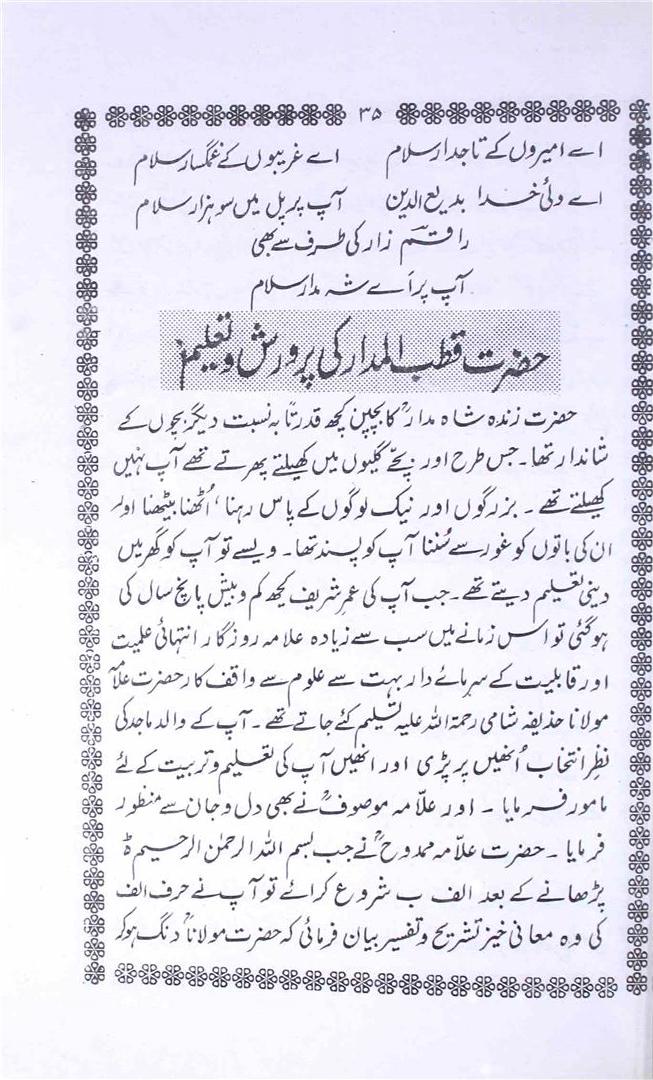 ۳۵
اے امیروں کے تاجدار سلام اے غریبوں کے غمگسار سلام
اے ولئ خدا بدیع الدین آپ پر پل میں سو ہزار سلام
راقم زار کی طرف سے بھی
آپ پر اَے شہ مدار سلام
حضرت قطب المدار کی پرورش و تعلیم
حضرت زندہ شاہ مدارؒ کا بچپن کچھ قدرتاً بہ نسبت دیگر بچوں کے
شاندار تھا۔ جس طرح اور بچے گلیوں میں کھیلتے پھرتے تھے آپ نہیں
کھیلتے تھے ۔ بزرگوں اور نیک لوگوں کے پاس رہنا ، اُٹھنا بیٹھنا اور
ان کی باتوں کو غور سے سُننا آپ کو پسند تھا۔ ویسے تو آپ کو گھر میں
دینی تعلیم دیتے تھے ۔ جب آپ کی عمر شریف کچھ کم و بیش پانچ سال کی
ہوگئی تو اس زمانے میں سب سے زیادہ علامہ روزگار انتہائی علمیت
اور قابلیت کے سرمائے دار بہت سے علوم سے واقف کار حضرت علامہ
مولانا حذیفہ شامی رحمۃ اللہ علیہ تسلیم کئے جاتے تھے ۔ آپ کے والد ماجد کی
نظرِ انتخاب اُنھیں پر پڑی اور انھیں آپ کی تعلیم و تربیت کے لئے
مامور فرمایا ۔ اور علّامہ موصوفؒ نے بھی دل و جان سے منظور
فرمایا ۔ حضرت علّامہ ممدوحؒ نے جب بسم اللہ الرحمٰن الرحیم ۃ
پڑھانے کے بعد الف ب شروع کرائے تو آپ نے حرف الف
کی وہ معانی خیز تشریح و تفسیر بیان فرمائی کہ حضرت مولاناؒ دنگ ہوکر